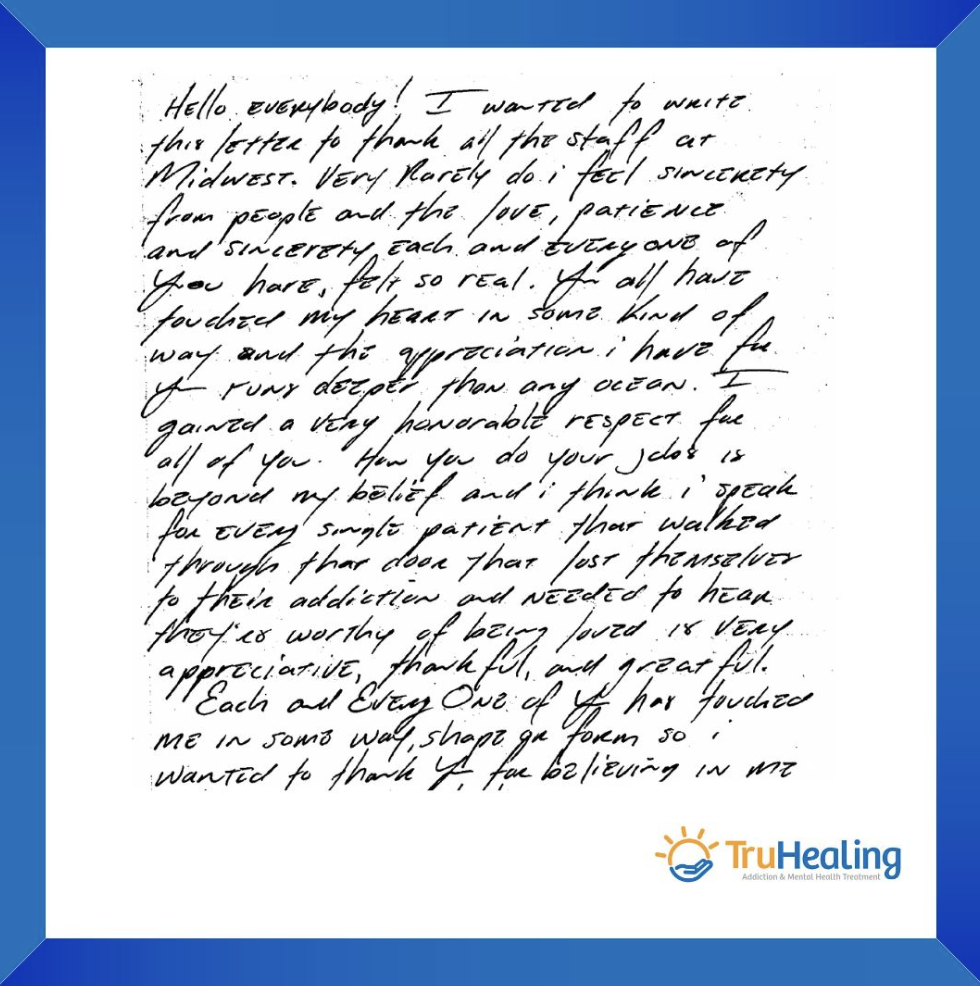 Hello everybody! I wanted to write
this letter to thank all the staff at
Midwest. Very Rarely do i feel sincerety
from people and the love, patience
and sincerety each and every one of
you have, felt so real. Y'all have
touched my heart in some kind of
way and the appreciation i have for
y'all runs deeper than any ocean. I
gained a very honorable respect for
all of you. How you do your jobs is
beyond my belief and i think i speak
for every single patient that walked
through that door that lost themselves
to their addiction and needed to hear
they're worthy of being loved is very
appreciative, thankful, and greatful.
Each and Every One of y'all has touched
me in some way, shape or form so i
wanted to thank y'all for believing in me
TruHealing
Addiction & Mental Health Treatment